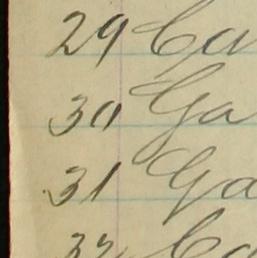 29 Ca
30 Ga
31 Ga
32 Ca